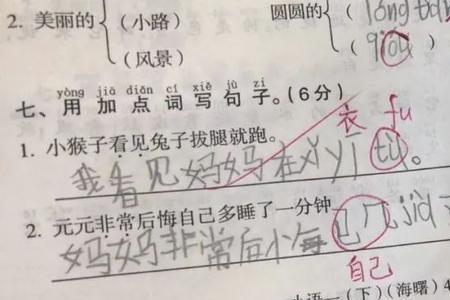 2. 美丽的 (小路) 圆圆的 (lóng
(风景) (qiú)
yòng jiā diǎn cí xiě jù zi
七、用加点词写句子。(6分)
1. 小猴子看见兔子拔腿就跑。
衣 fu
我看见妈妈在xǐ yī tu。
2. 元元非常后悔自己多睡了一分钟
妈妈非常后小每己几jiù
自己
(下) (海曙) 4